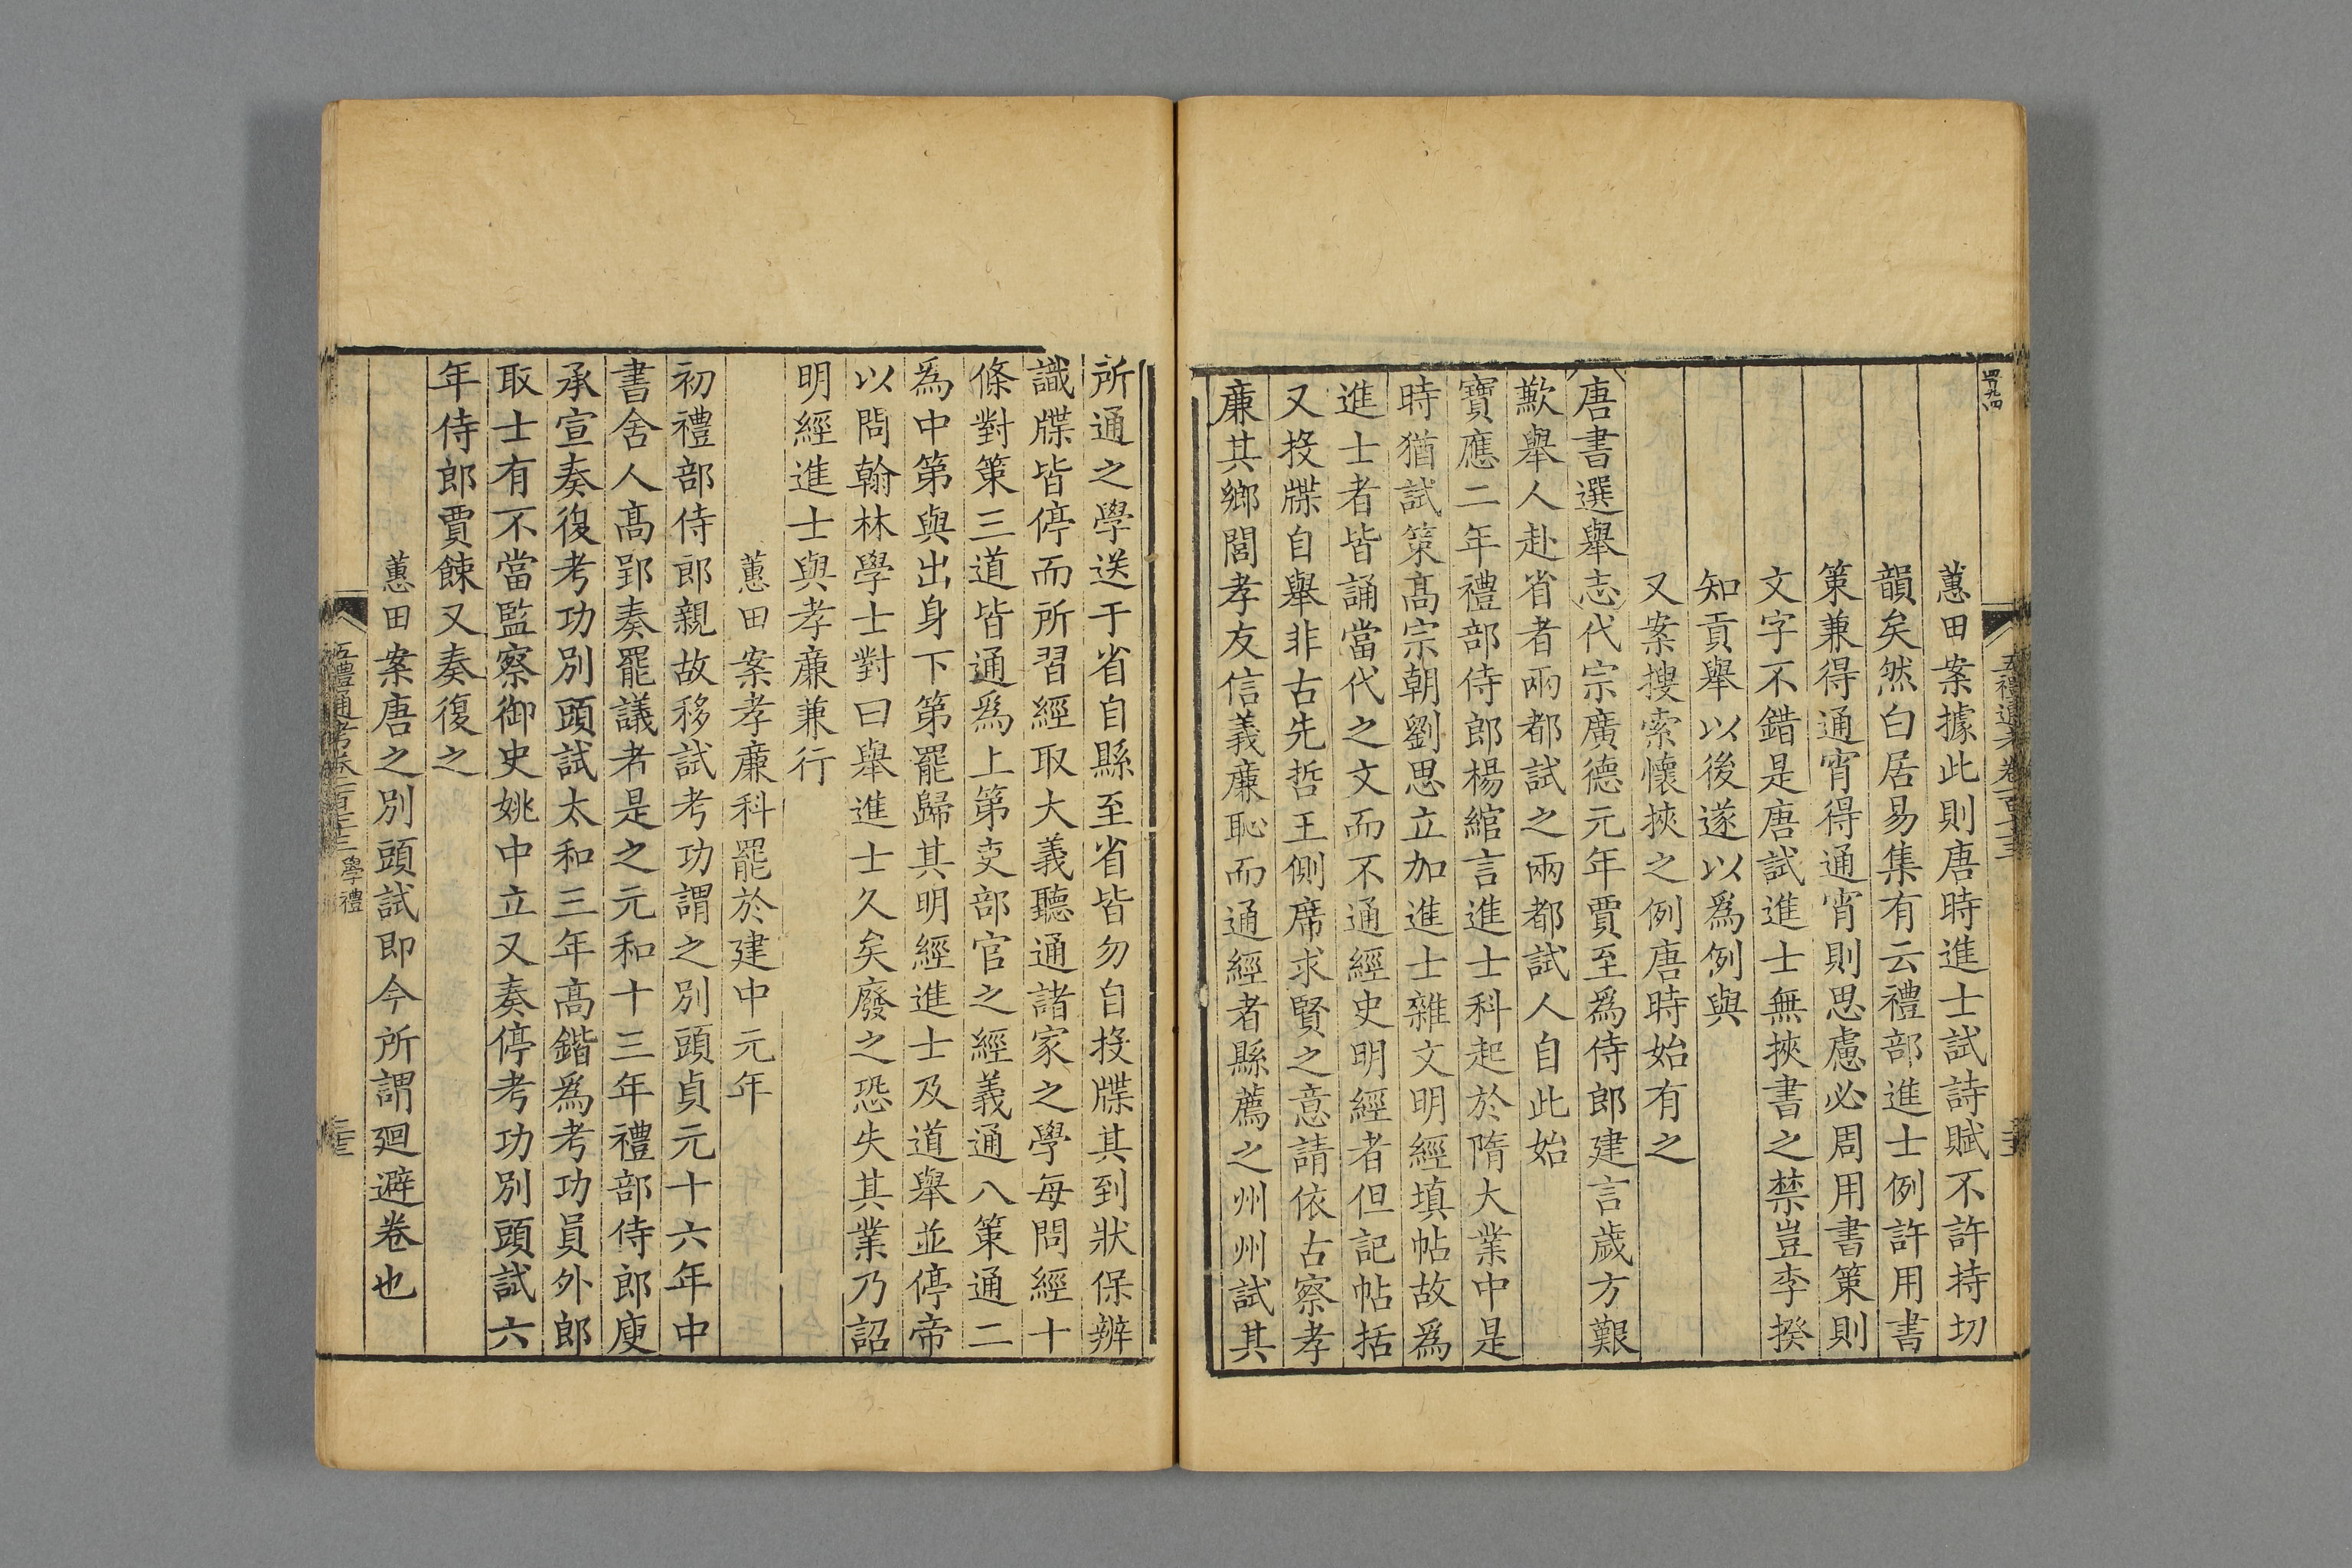 蕙田案據此則唐時進士試詩賦不許持切
韻矣然白居易集有云禮部進士例許用書
策兼得通宵得通宵則思慮必周用書策則
文字不錯是唐試進士無挾書之禁豈李揆
知貢舉以後遂以爲例與
又案搜索懷挾之例唐時始有之
唐書選舉志代宗廣德元年賈至爲侍郎建言歲方艱
歉舉人赴省者兩都試之兩都試人自此始
寶應二年禮部侍郎楊綰言進士科起於隋大業中是
時猶試策高宗朝劉思立加進士雜文明經填帖故爲
進士者皆誦當代之文而不通經史明經者但記帖括
又投牒自舉非古先哲王側席求賢之意請依古察孝
廉其鄉閭孝友信義廉恥而通經者縣薦之州州試其
所通之學送于省自縣至省皆勿自投牒其到狀保辨
識牒皆停而所習經取大義聽通諸家之學每問經十
條對策三道皆通爲上第吏部官之經義通八策通二
爲中第與出身下第罷歸其明經進士及道舉並停帝
以問翰林學士對曰舉進士久矣廢之恐失其業乃詔
明經進士與孝廉兼行
蕙田案孝廉科罷於建中元年
初禮部侍郎親故移試考功謂之別頭貞元十六年中
書舍人高郢奏罷議者是之元和十三年禮部侍郎庾
承宣奏復考功別頭試太和三年高鍇爲考功員外郎
取士有不當監察御史姚中立又奏停考功別頭試六
年侍郎賈餗又奏復之
蕙田案唐之別頭試即今所謂迴避卷也
五禮通考卷一百七十三 學禮